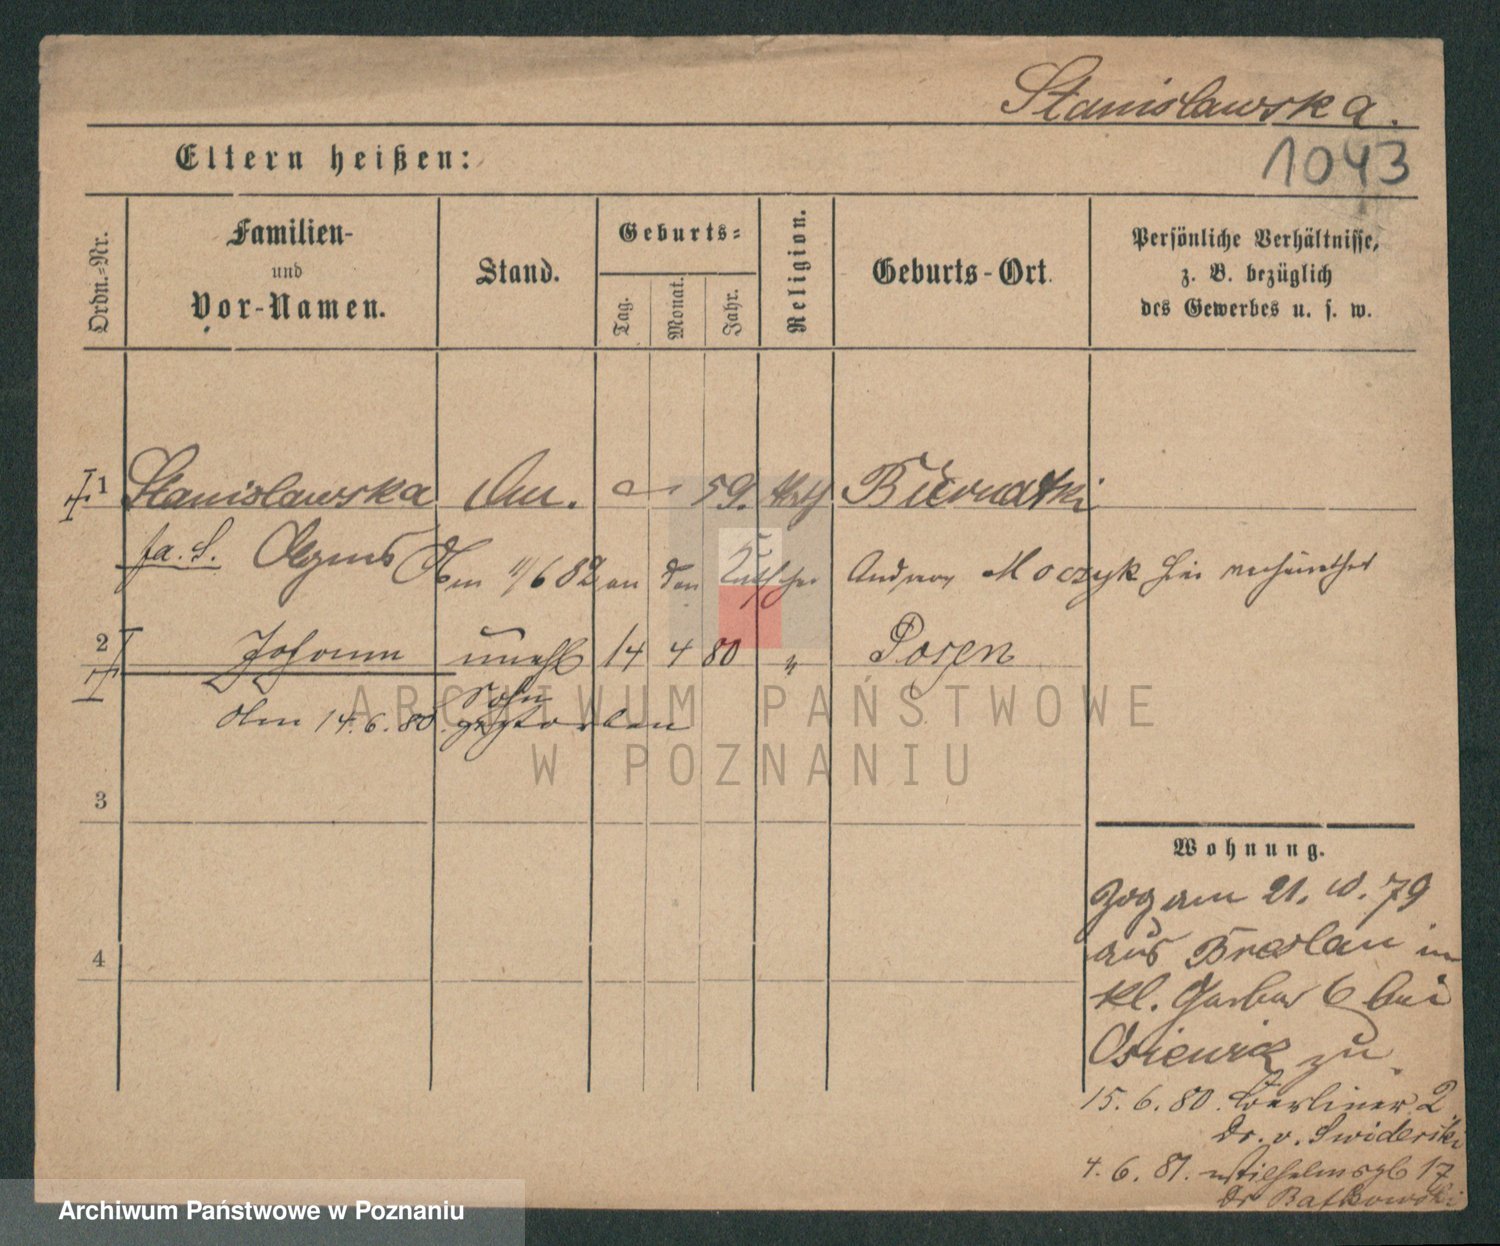 Stanislawska.
1043
Eltern heißen:
Ordn.-Nr.
Familien-
und
Vor-Namen.
Stand.
Geburts-
Tag.
Monat.
Jahr.
Religion.
Geburts-Ort.
Persönliche Verhältnisse,
z. B. bezüglich
des Gewerbes u. s. w.
1 Stanislawska 59. Kath
Agnes Am 11/6 82 an den Kutscher Andreas Moczyk hier verheirathet
2 Johann unehl 14 4 80 " Posen
Sohn
Am 14.6.80. gestorben
3
4
Wohnung.
Zog am 21. 10. 79
aus Breslau in
kl. Gerber 6 bei
zu.
15. 6. 80. Berliner 2
Dr. v. Swiderski
4. 6. 81. Wilhelmspl 17
Dr
ARCHIWUM PAŃSTWOWE
W POZNANIU
Archiwum Państwowe w Poznaniu